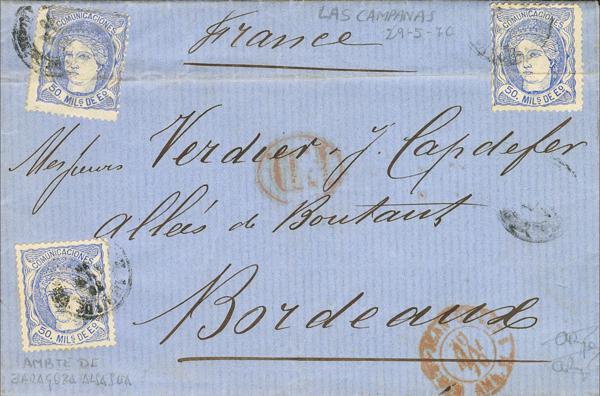 LAS CAMPANAS
29-5-70
France
COMUNICACIONES
50. MILS DE Eº
COMUNICACIONES
50. MILS DE Eº
Messieurs Verdier & J. Capdefer
P.D
allées de Boutaut
Bordeaux
COMUNICACIONES
50. MILS DE Eº
AMBTE DE
ZARAGOZA ALSASUA